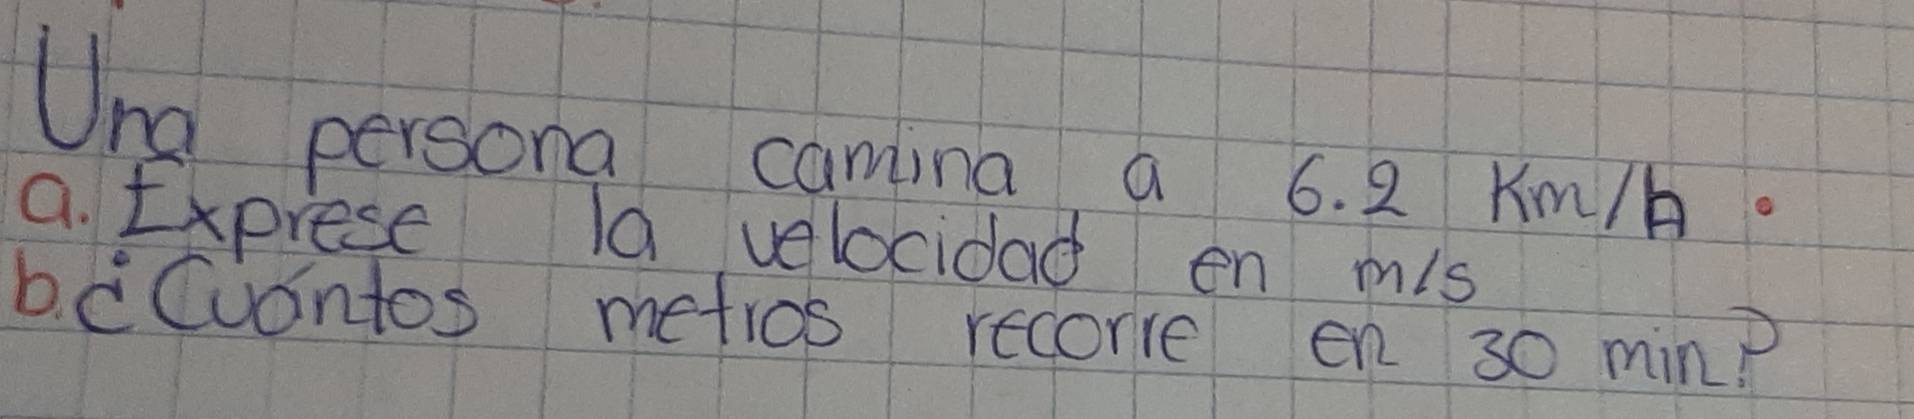 Una persona camina a 6.2 Km/h.
a. Exprese la velocidad en m/s
b. ¿Cuántos metros recorre en 30 min?